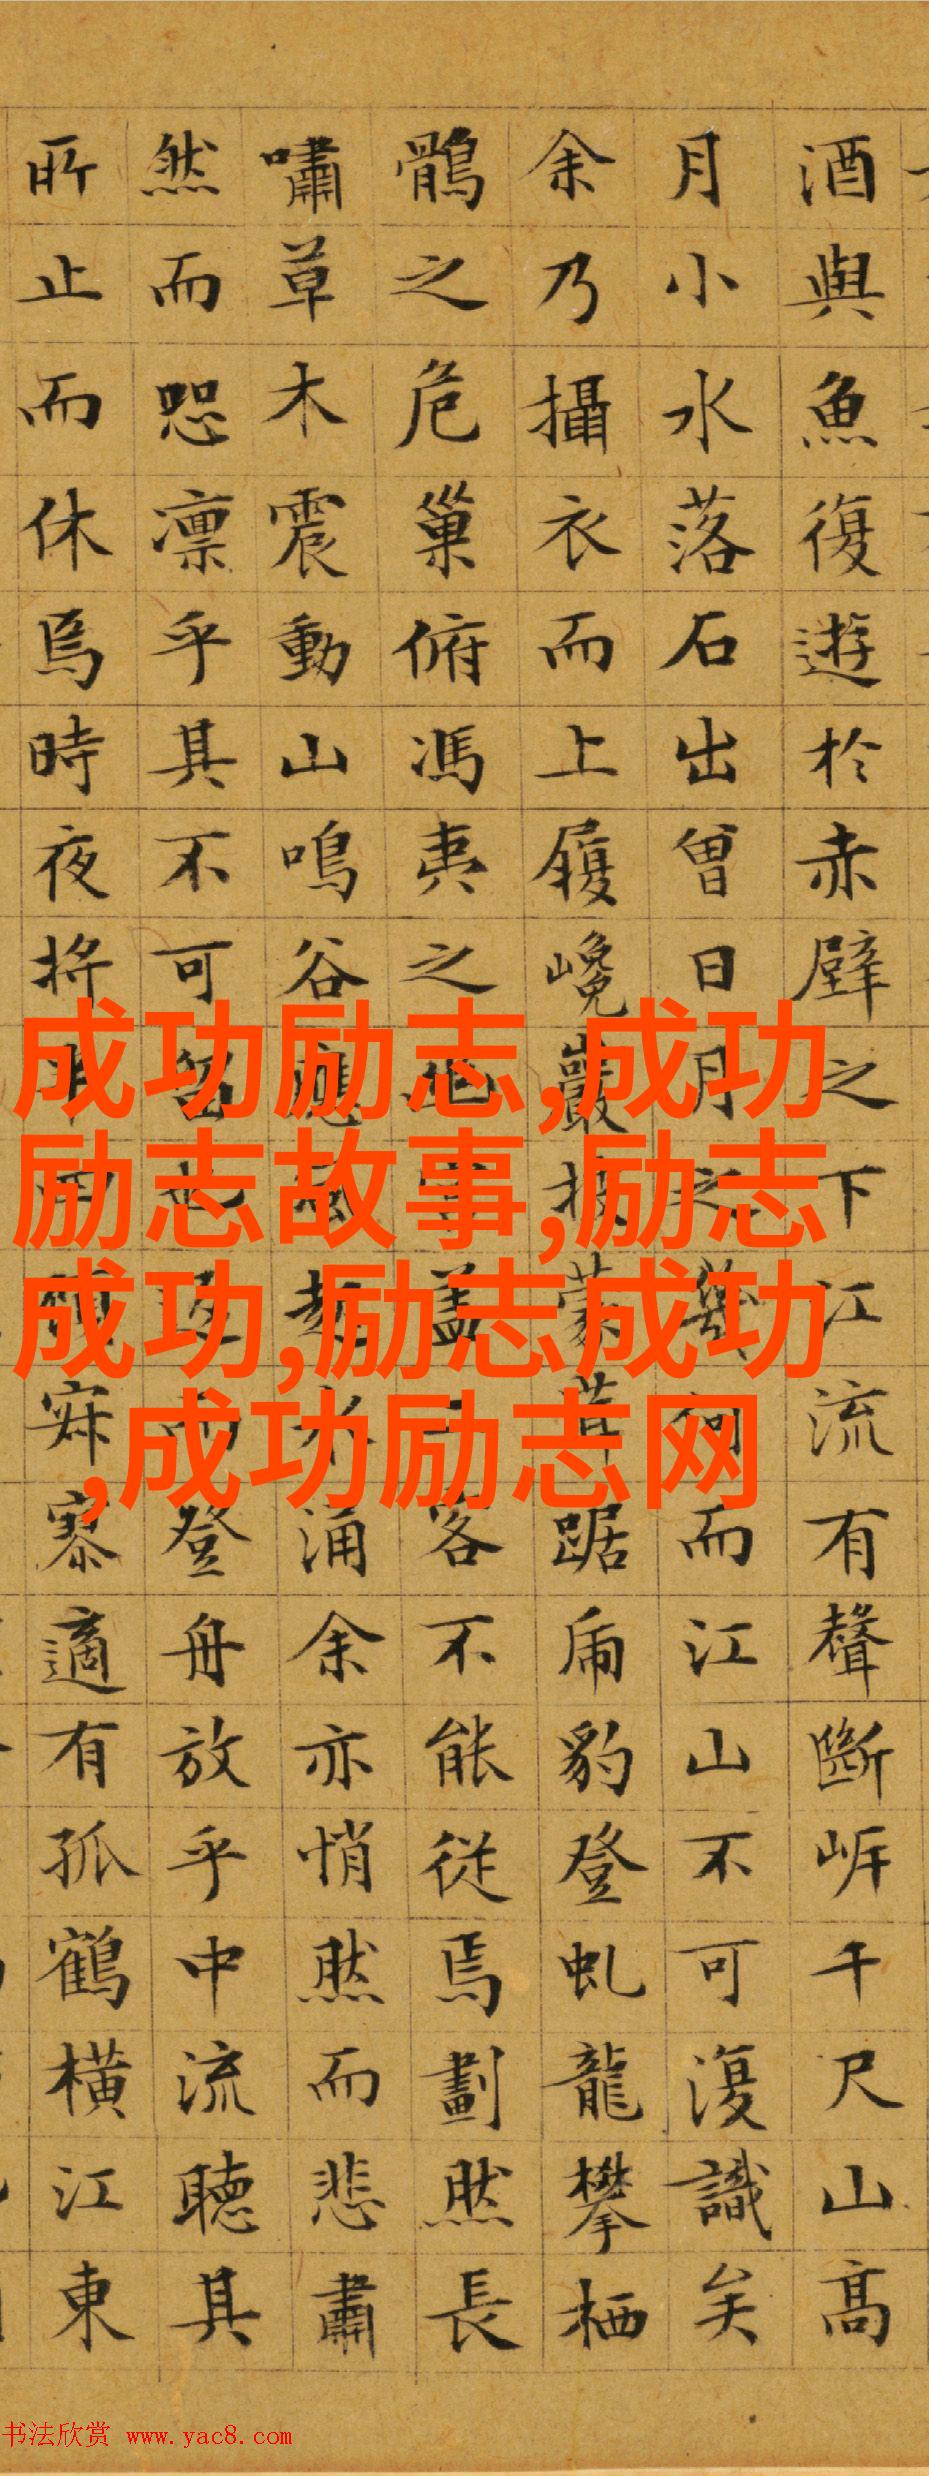 酒與魚復遊於赤壁之下江流有聲斷岸千尺山髙
月小水落石出曾日月之幾何而江山不可復識矣
余乃攝衣而上履巉巖披蒙茸踞虎豹登虬龍攀栖
鶻之危巢俯馮夷之盖二客不能從焉劃然長
嘯草木震動山鳴谷應風起水涌余亦悄然而悲肅
然而恐凛乎其不可留也返而登舟放乎中流聽其
所止而休焉時夜將半四顧寂寥適有孤鶴橫江東
成功励志,成功
励志故事,励志
成功,励志成功
,成功励志网
书法欣赏 www.yac8.com